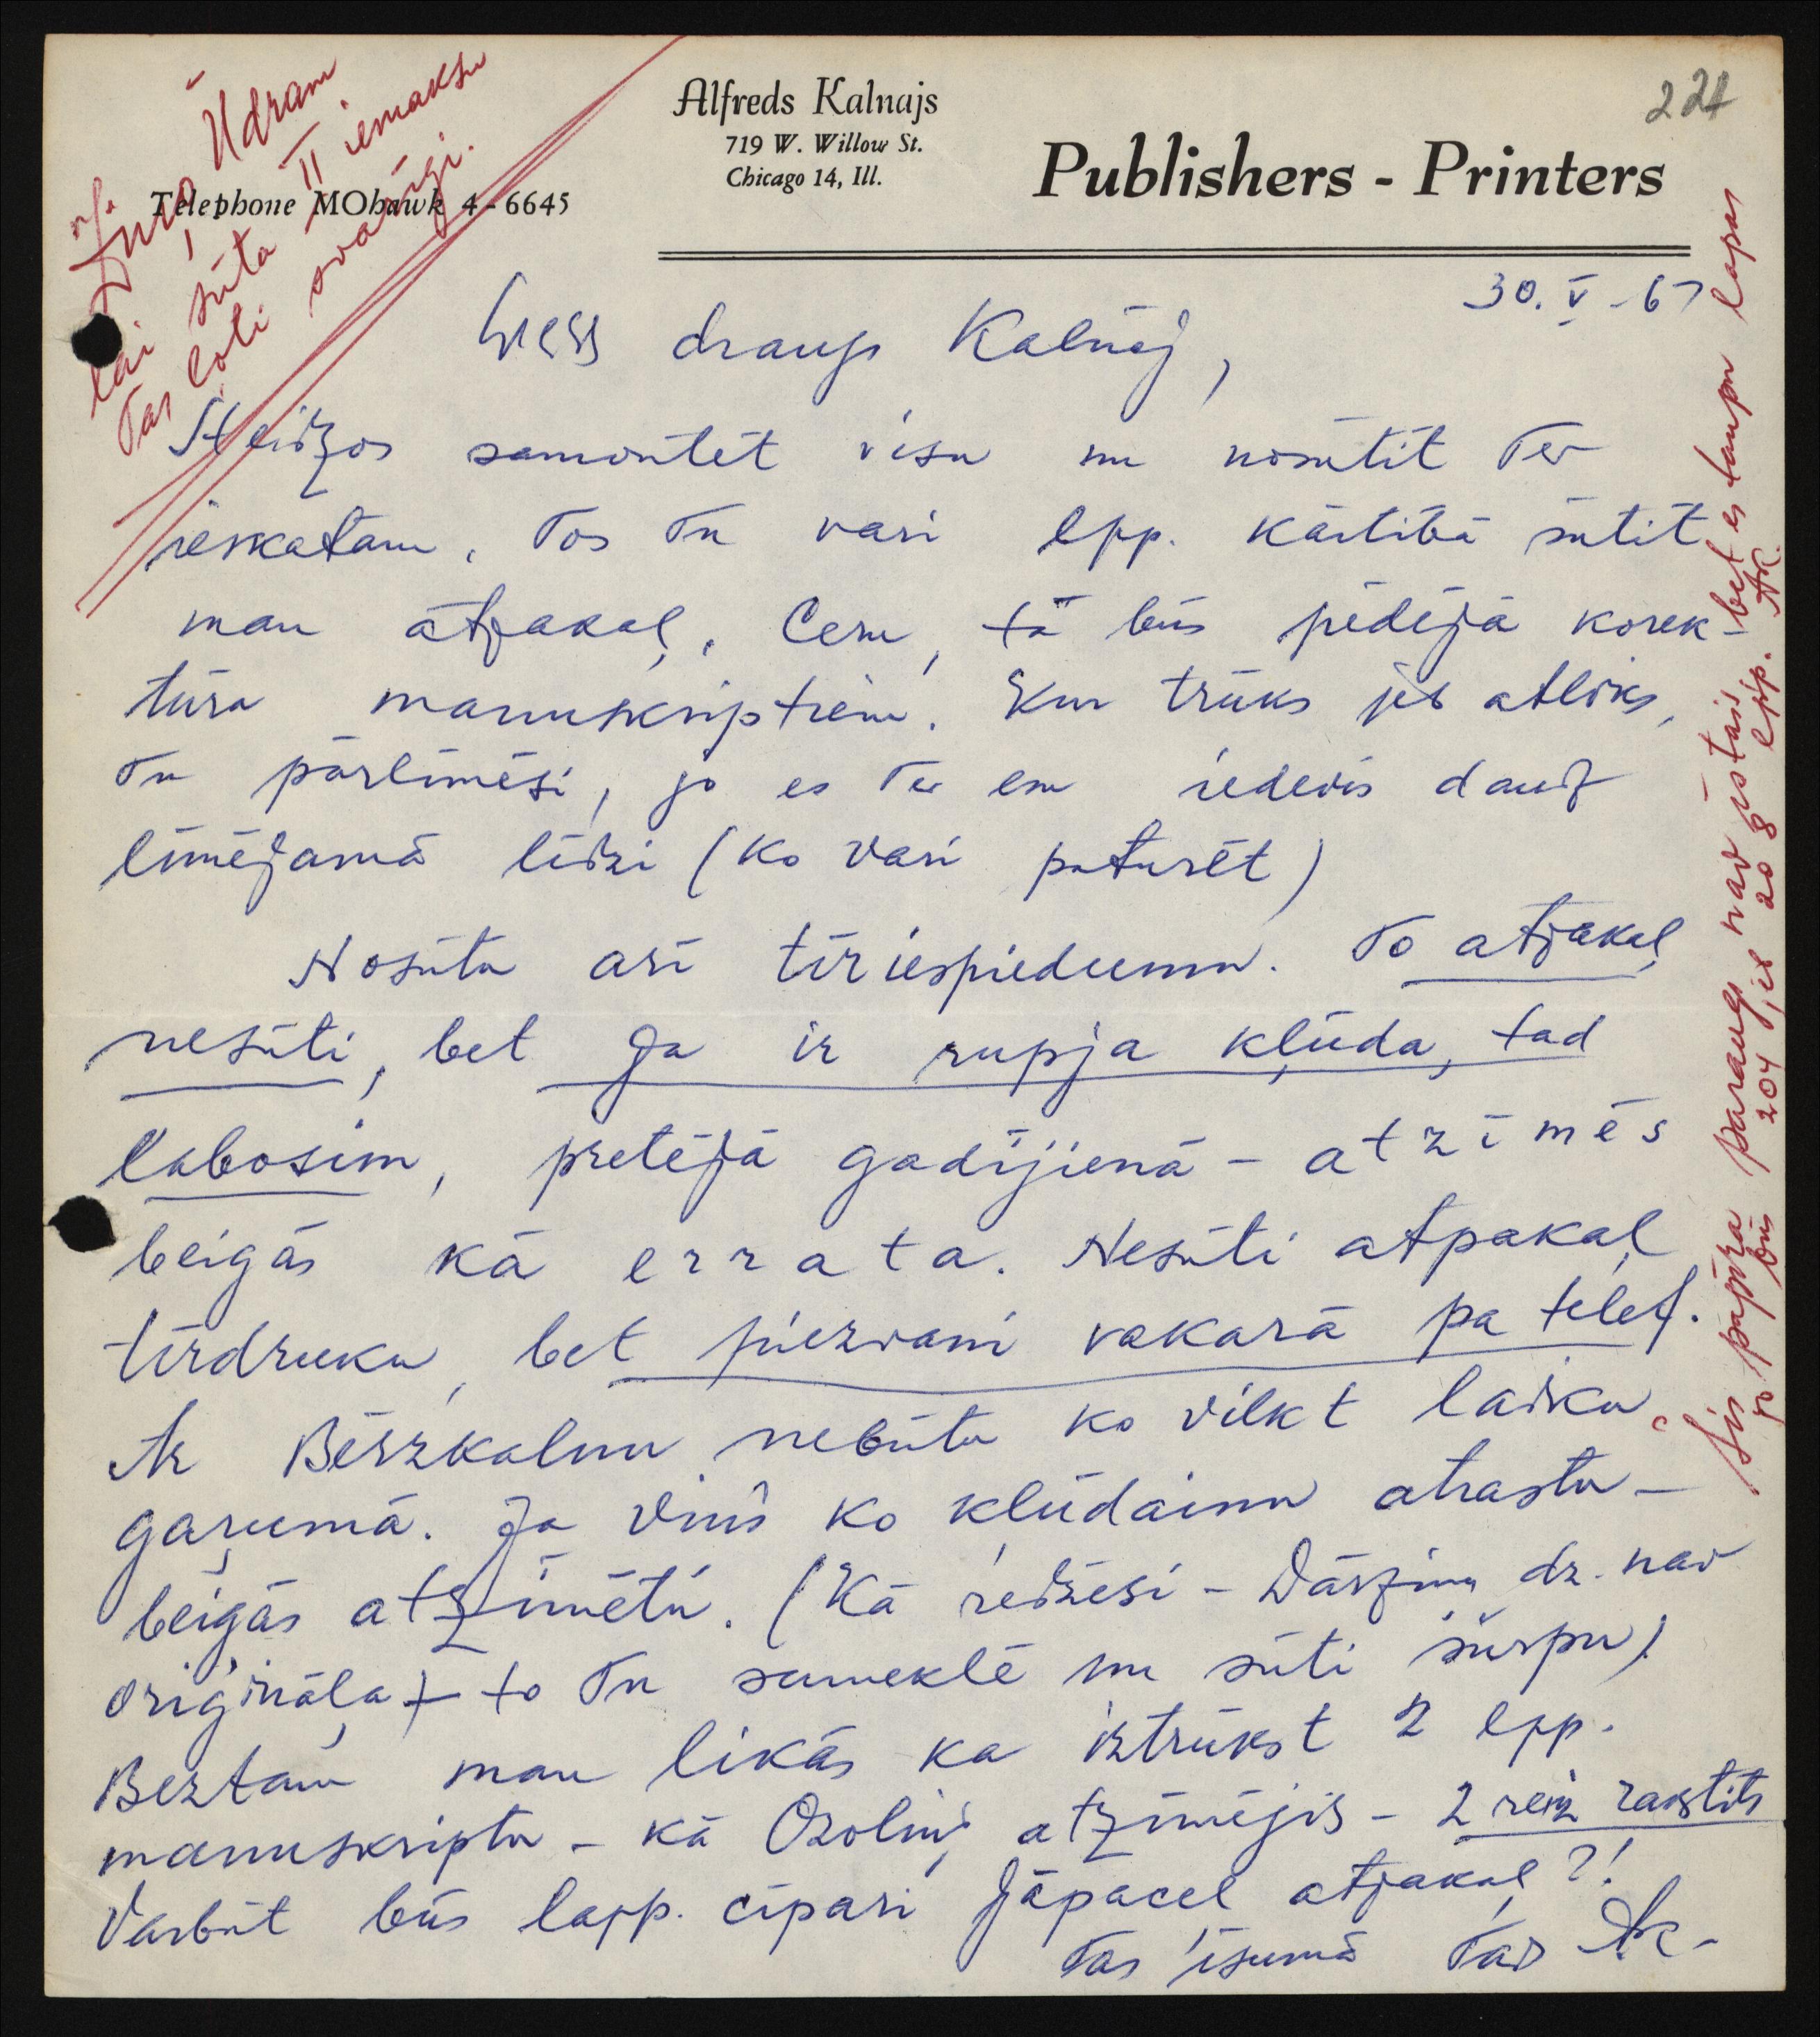 224
Alfreds Kalnajs
719 W. Willow St.
Chicago 14, Ill.
Telephone MOhawk 4-6645
Publishers - Printers
Ūdram
lai sūta II iemaksu
Tas ļoti svarīgi.
30. V - 67
draugs Kalnāj,
Steidzos samontēt visu un nosūtīt Tev
ieskatam. Tos Tu vari lpp. kārtībā sūtīt
man atpakaļ. Ceru, tā būs pēdējā korek-
tūra manuskriptiem. Kur trūks jeb atliks,
Tu pārlīmēsi, jo es Tev esmu iedevis daudz
līmējamā līdzi (ko vari paturēt)
Nosūtu arī tīriespiedumu. To atpakaļ
nesūti, bet ja ir rupja kļūda, tad
labosim, pretējā gadījienā - atzīmēs
beigās kā errata. Nesūti atpakaļ
tīrdruku, bet piezvani vakarā pa telef.
Ar Bērzkalnu nebūtu ko vilkt laiku
gaŗumā. Ja viņš ko kļūdainu atrastu -
beigās atzīmētu. (Kā redzēsi - Dārziņa dz. nav
oriģināla - to Tu sameklē un sūti šurpu)
Beztam man likās ka iztrūkst 2 lpp.
manuskripta - kā Ozoliņš atzīmējis - 2 reiz rakstīts
Varbūt būs lapp. cipari jāpaceļ atpakaļ?!
Tas īsumā Tav AK-
Šis papīra paraugs nav īstais - bet es taupu lapas
jo būs 204 jeb 208 lpp. AK.